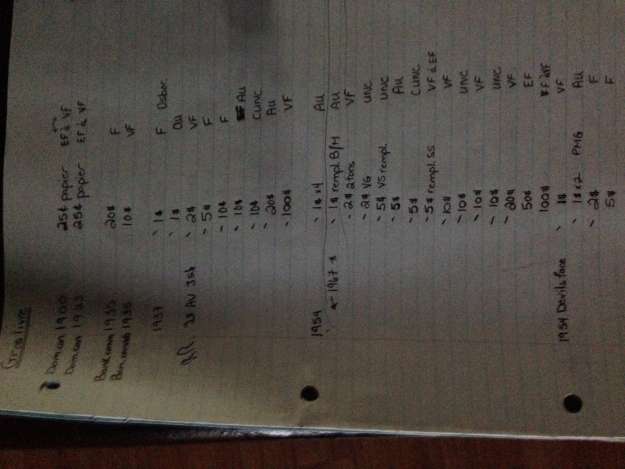 Gros livre
Dom can 1900 25¢ papier EF à VF
Dom can 1923 25¢ papier EF à VF
1935 20$ F
1935 10$ VF
1937 - 1$ F Osbor.
- 1$ AU
- 2$ VF
- 5$ F
- 10$ F
- 10$ AU
- 10$ CUNC
- 20$ AU
- 100$ VF
1954 - 1$ x4 AU
1967 - 1$ rempl B/M AU
- 2$ 2 tons VF
- 2$ VG UNC
- 5$ VS rempl. UNC
- 5$ AU
- 5$ CUNC
- 5$ rempl SS VF à EF
- 10$ VF
- 10$ UNC
- 10$ VF
- 10$ UNC
- 20$ VF
50$ EF
100$ VF
1954 Devils face - 1$ VF
- 1$ x2 PMG AU
- 2$ F
5$ F